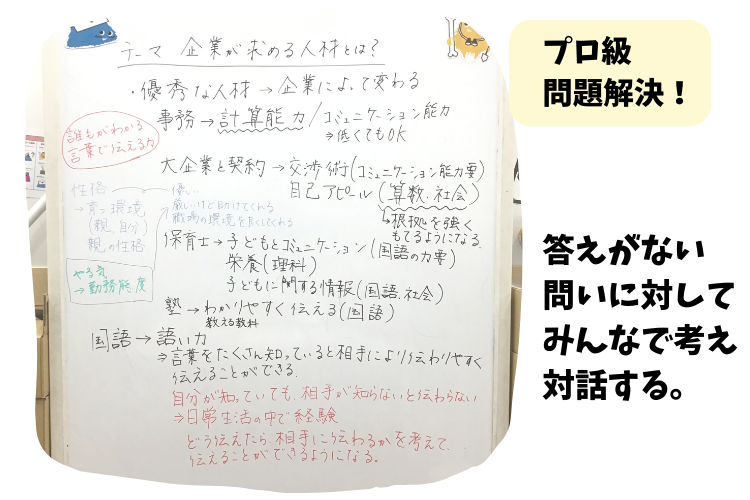 プロ級
問題解決！
答えがない
問いに対して
みんなで考え
対話する。
テーマ 企業が求める人材とは？
・優秀な人材→企業によって変わる
事務→計算能力/コミュニケーション能力
⇒低くてもOK
誰もがわかる
言葉で伝える力
大企業と契約→交渉術(コミュニケーション能力要)
自己アピール(算数、社会)
↳根拠を強く
もてるようになる。
性格
→育つ環境
(親、自分)
親の性格
優
厳しいけど助けてくれる
職場の環境を良くしてくれる
やる気
→勤務態度
保育士→子どもとコミュニケーション(国語の力要)
栄養(理科)
子どもに関する情報(国語、社会)
塾→わかりやすく伝える(国語)
教える教科
国語→語い力
⇒言葉をたくさん知っていると相手により伝わりやすく
伝えることができる。
自分が知っていても、相手が知らないと伝わらない
⇒日常生活の中で経験
どう伝えたら、相手に伝わるかを考えて、
伝えることができるようになる。